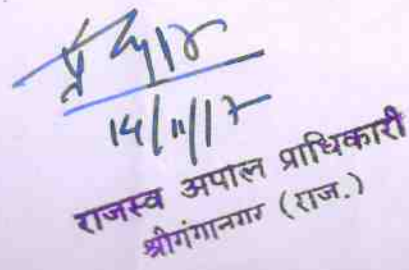 14/11/17
राजस्व अपाल प्राधिकारी
श्रीगंगानगर (राज.)